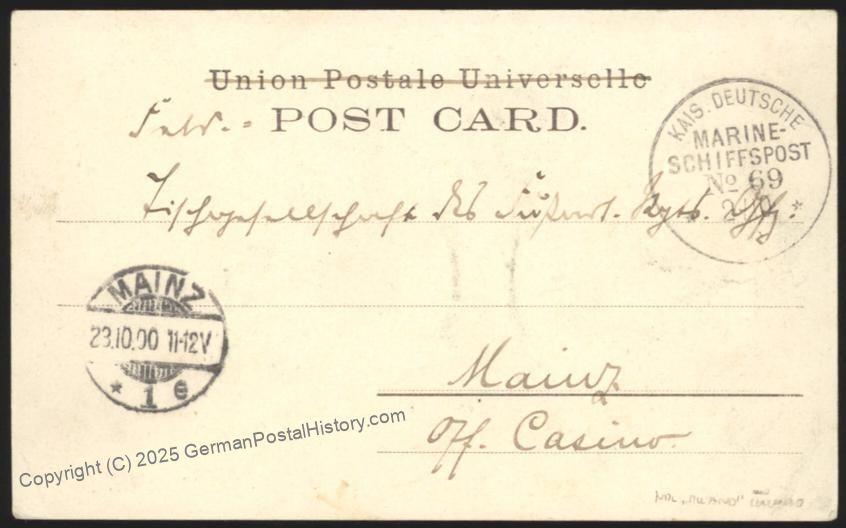 Union Postale Universelle
Feldp.= POST CARD.
KAIS. DEUTSCHE
MARINE-
SCHIFFSPOST
No 69
Tischgesellschaft des Fußart. Rgts.
MAINZ
23.10.00 11-12V
* 1 e
Mainz
Off. Casino.
Copyright (C) 2025 GermanPostalHistory.com